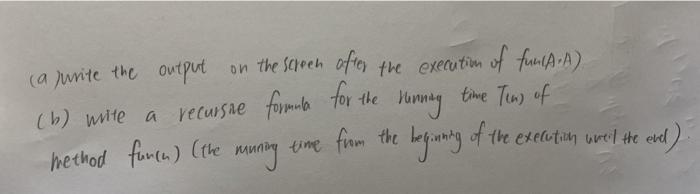 (a) write the output on the screen after the execution of fun(A.A)
(b) write a recursive formula for the running time T(n) of
method fun(n) (the running time from the beginning of the execution until the end)